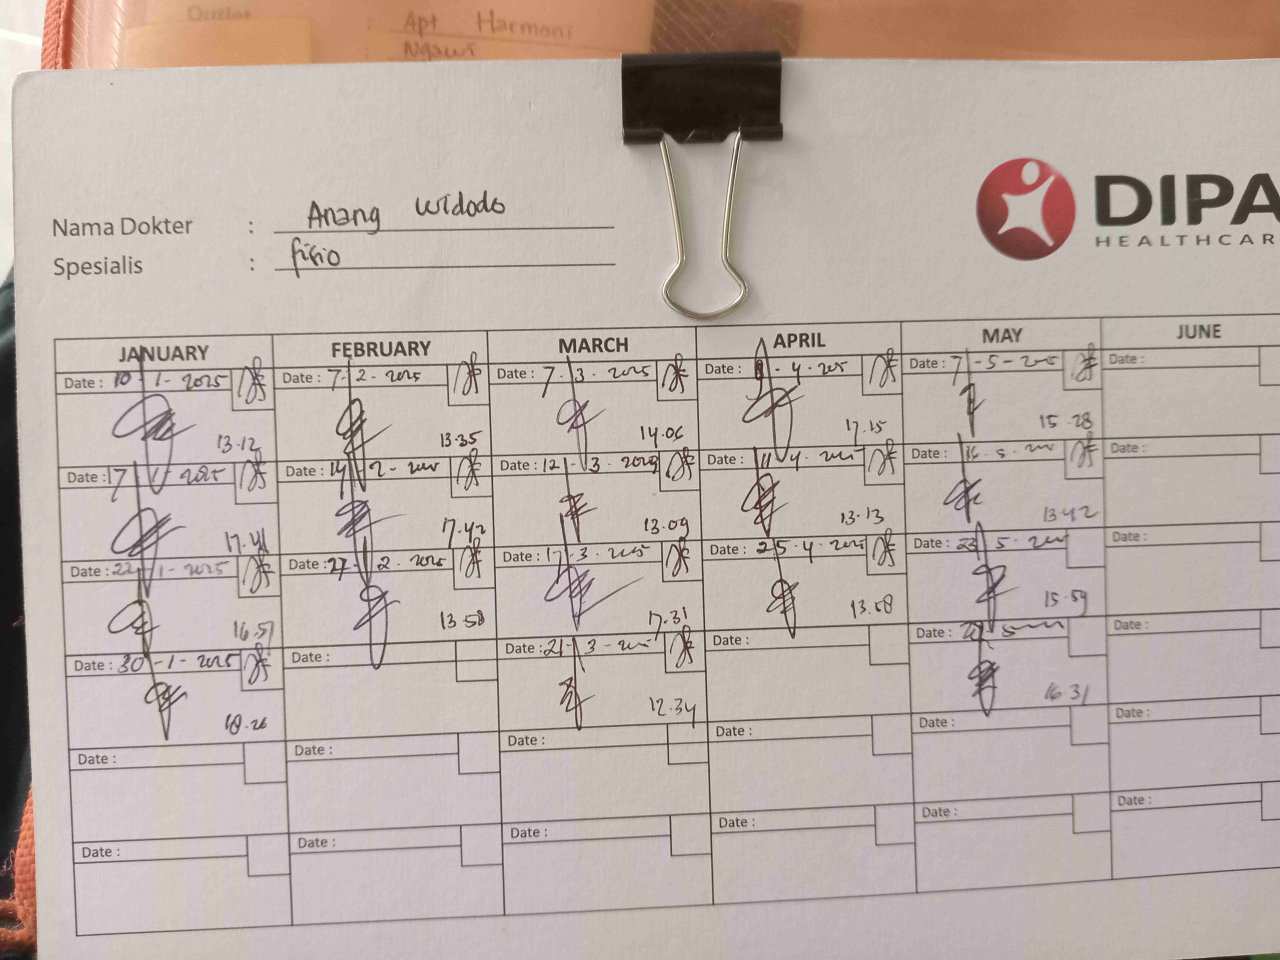 Outlet
: Apt Harmoni
: Ngawi
Nama Dokter : Anang Widodo
Spesialis : fisio
DIPA
HEALTHCAR
JANUARY FEBRUARY MARCH APRIL MAY JUNE
Date : 10-1-2025 Date : 7-2-2025 Date : 7-3-2025 Date : -4-2025 Date : 7-5-2025 Date :
13.12 13.35 14.06 17.15 15.28
Date : 17 1 2025 Date : 14 2-2025 Date : 12-3-2025 Date : 11 4-2025 Date : 16-5-2025 Date :
17.41 17.42 13.09 13.13 13.42
Date : 22-1-2025 Date : 27-2-2025 Date : 17-3-2025 Date : 25-4-2025 Date : 23 5-2025 Date :
16.57 13.58 17.31 13.58 15.59
Date : 30-1-2025 Date : Date : 21-3-2025 Date : Date : 5 Date :
18.26 12.34 16.31
Date : Date : Date : Date : Date : Date :
Date : Date : Date : Date : Date : Date :